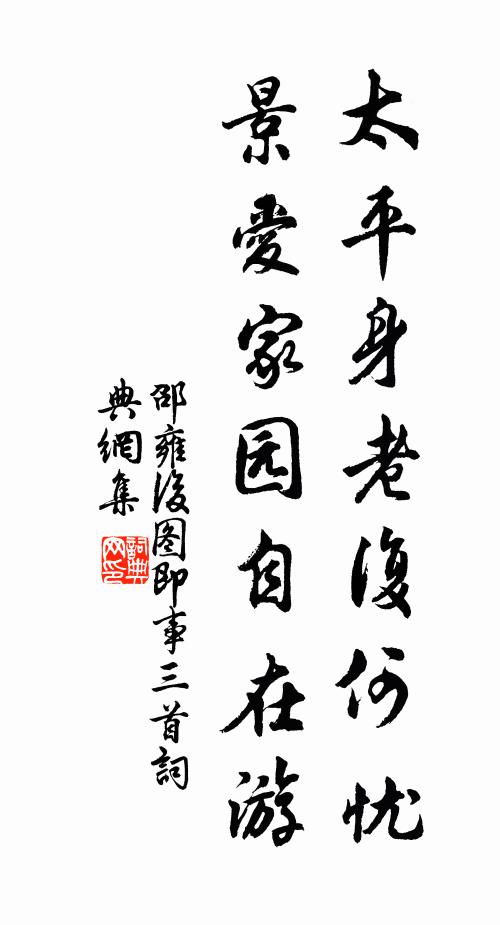 太平身老復何忧
景愛家园自在游
邵雍後图即事三首詞
典網集
詞典
网印